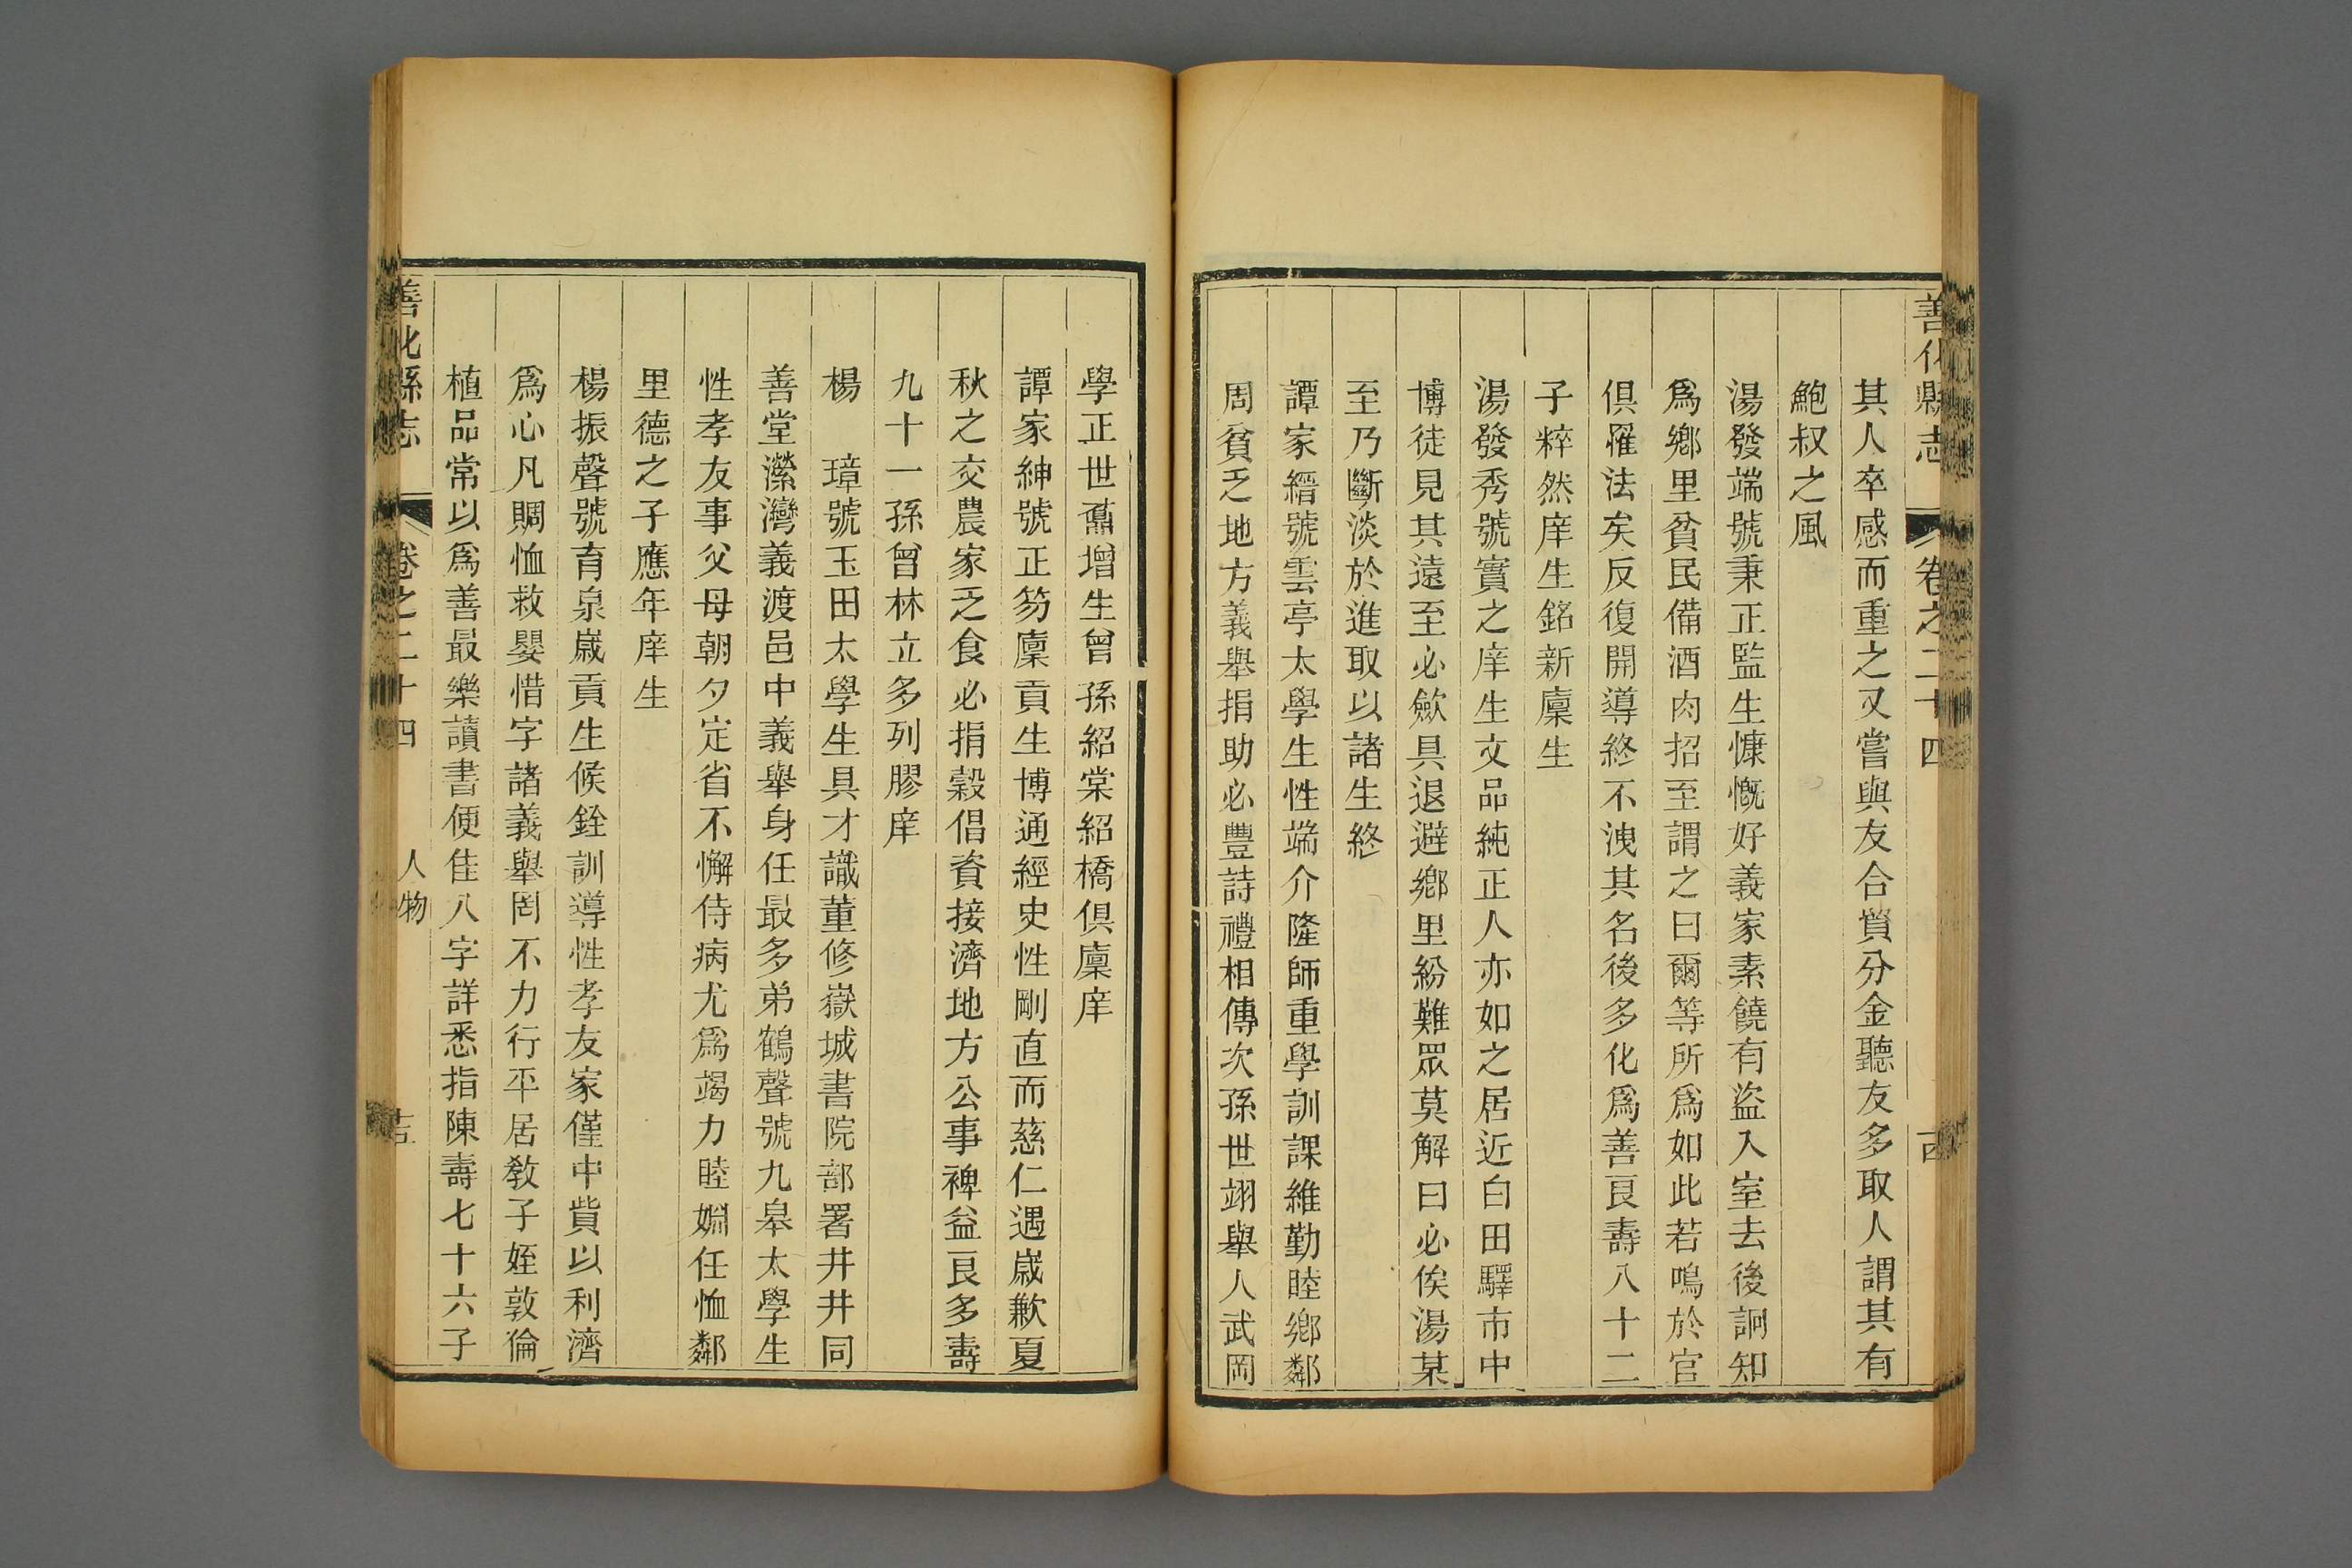 善化縣志 卷之二十四
其人卒感而重之又嘗與友合貿分金聽友多取人謂其有
鮑叔之風
湯發端號秉正監生慷慨好義家素饒有盜入室去後詗知
爲鄉里貧民備酒肉招至謂之曰爾等所爲如此若鳴於官
俱罹法矣反復開導終不洩其名後多化爲善良壽八十二
子粹然庠生銘新廩生
湯發秀號實之庠生文品純正人亦如之居近白田驛市中
博徒見其遠至必歛具退避鄉里紛難眾莫解曰必俟湯某
至乃斷淡於進取以諸生終
譚家縉號雲亭太學生性端介隆師重學訓課維勤睦鄉鄰
周貧乏地方義舉捐助必豐詩禮相傳次孫世翊舉人武岡
學正世鼒增生曾孫紹棠紹橋俱廩庠
譚家紳號正笏廩貢生博通經史性剛直而慈仁遇歲歉夏
秋之交農家乏食必捐穀倡資接濟地方公事裨益良多壽
九十一孫曾林立多列膠庠
楊 璋號玉田太學生具才識董修嶽城書院部署井井同
善堂瀠灣義渡邑中義舉身任最多弟鶴聲號九皋太學生
性孝友事父母朝夕定省不懈侍病尤爲竭力睦婣任恤鄰
里德之子應年庠生
楊振聲號育泉歲貢生候銓訓導性孝友家僅中貲以利濟
爲心凡賙恤救嬰惜字諸義舉罔不力行平居教子姪敦倫
植品常以爲善最樂讀書便佳八字詳悉指陳壽七十六子
善化縣志 卷之二十四 人物